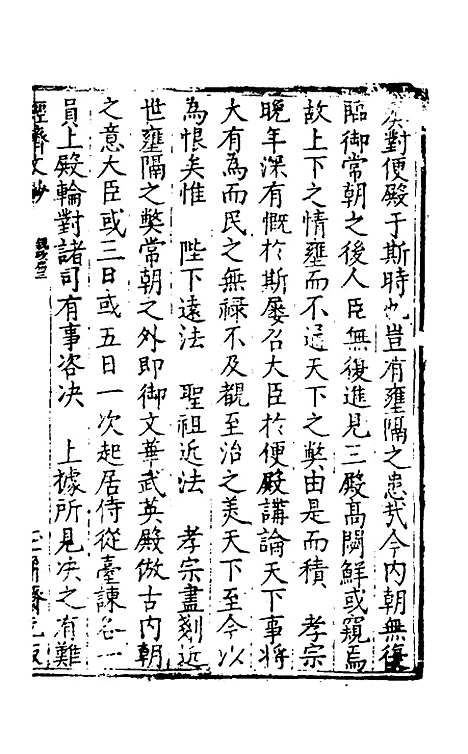 奏對便殿于斯時也豈有壅隔之患哉今内朝無復
臨御常朝之後人臣無復進見三殿髙閟鮮或窺焉
故上下之情壅而不通天下之獘由是而積 孝宗
晚年深有慨於斯屡召大臣於便殿講論天下事将
大有為而民之無禄不及觀至治之美天下至今以
為恨矣惟 陛下遠法 聖祖近法 孝宗盡剗近
世壅隔之獘常朝之外即御文華武英殿倣古内朝
之意大臣或三日或五日一次起居侍從臺諫各一
員上殿輪對諸司有事咨决 上據所見决之有難
經濟文抄